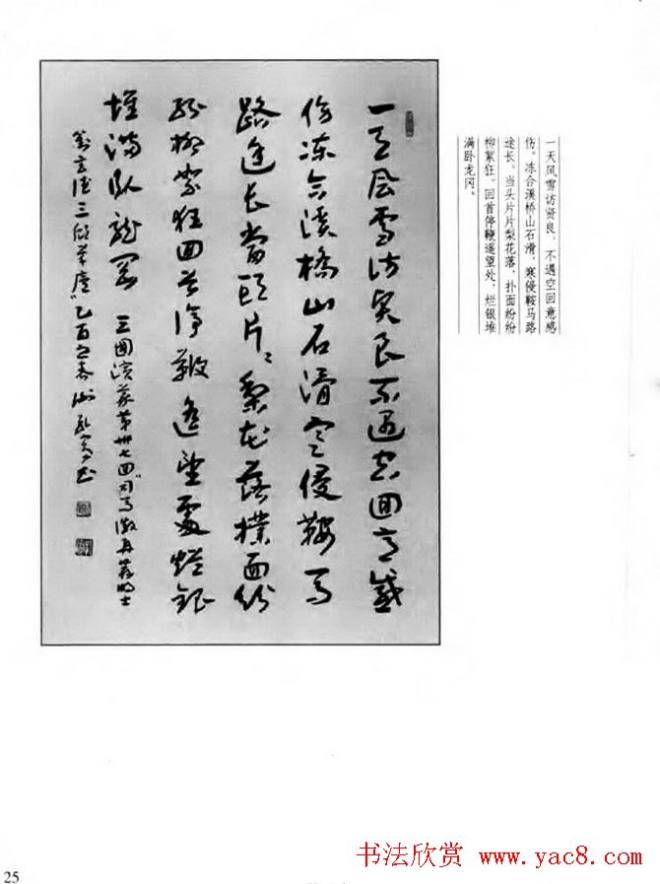 一天风雪访贤良，不遇空回意感
伤。冻合溪桥山石滑，寒侵鞍马路
途长。当头片片梨花落，扑面纷纷
柳絮狂。回首停鞭遥望处，烂银堆
满卧龙冈。
一天風雪访贤良不遇空回意感
伤冻合溪橋山石滑寒侵鞍马
路途长當頭片〻梨花落撲面纷
纷柳絮狂回首停鞭遥望處烂银
堆满卧龍冈 三國演義第卅七回司马徽再荐名士
刘玄德三顾草廬 乙酉之春
书法欣赏 www.yac8.com
25